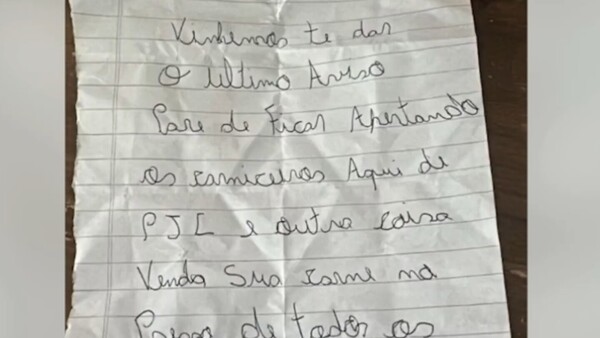 Vinhemos te das
O Ultimo Aviso
Pare de Ficar Apertando
os carniceiros Aqui de
PJC e outra coisa
Venda Sua carne na
de todos os